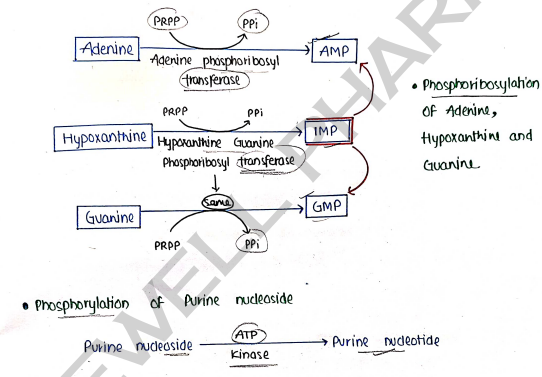 PRPP PPi
Adenine AMP
Adenine phosphoribosyl
transferase
• Phosphoribosylation
of Adenine,
Hypoxanthine and
Guanine
PRPP PPi
Hypoxanthine IMP
Hypoxanthine Guanine
Phosphoribosyl transferase
same
Guanine GMP
PRPP PPi
• Phosphorylation of Purine nucleoside
ATP
Purine nucleoside Purine nucleotide
Kinase